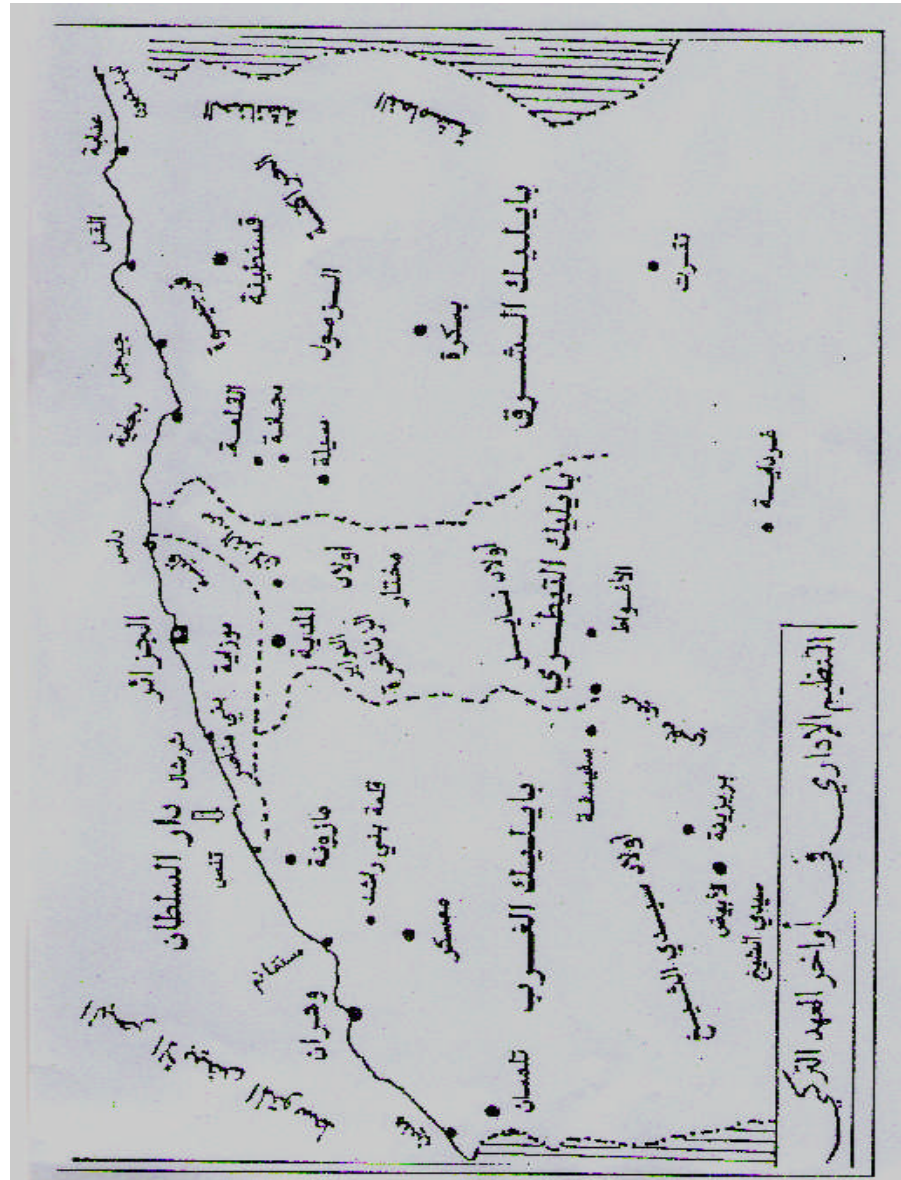 التنظيم الإداري في أواخر العهد التركي
عنابة
القل
جيجل
بجاية
دلس
الجزائر
شرشال
دار السلطان
تنس
مستغانم
وهران
تلمسان
قسنطينة
فرجيوة
الزمول
القلعة
مجانة
سيلة
بسكرة
بايليك الشرق
تقرت
غرداية
موزاية
بني مناصر
المدية
أولاد
مختار
الزناخرة
أولاد نايل
بايليك التيطري
الأغواط
مازونة
قلعة بني راشد
معسكر
بايليك الغرب
سفيسفة
أولاد سيدي الشيخ
بريزينة
لأبيض
سيدي الشيخ